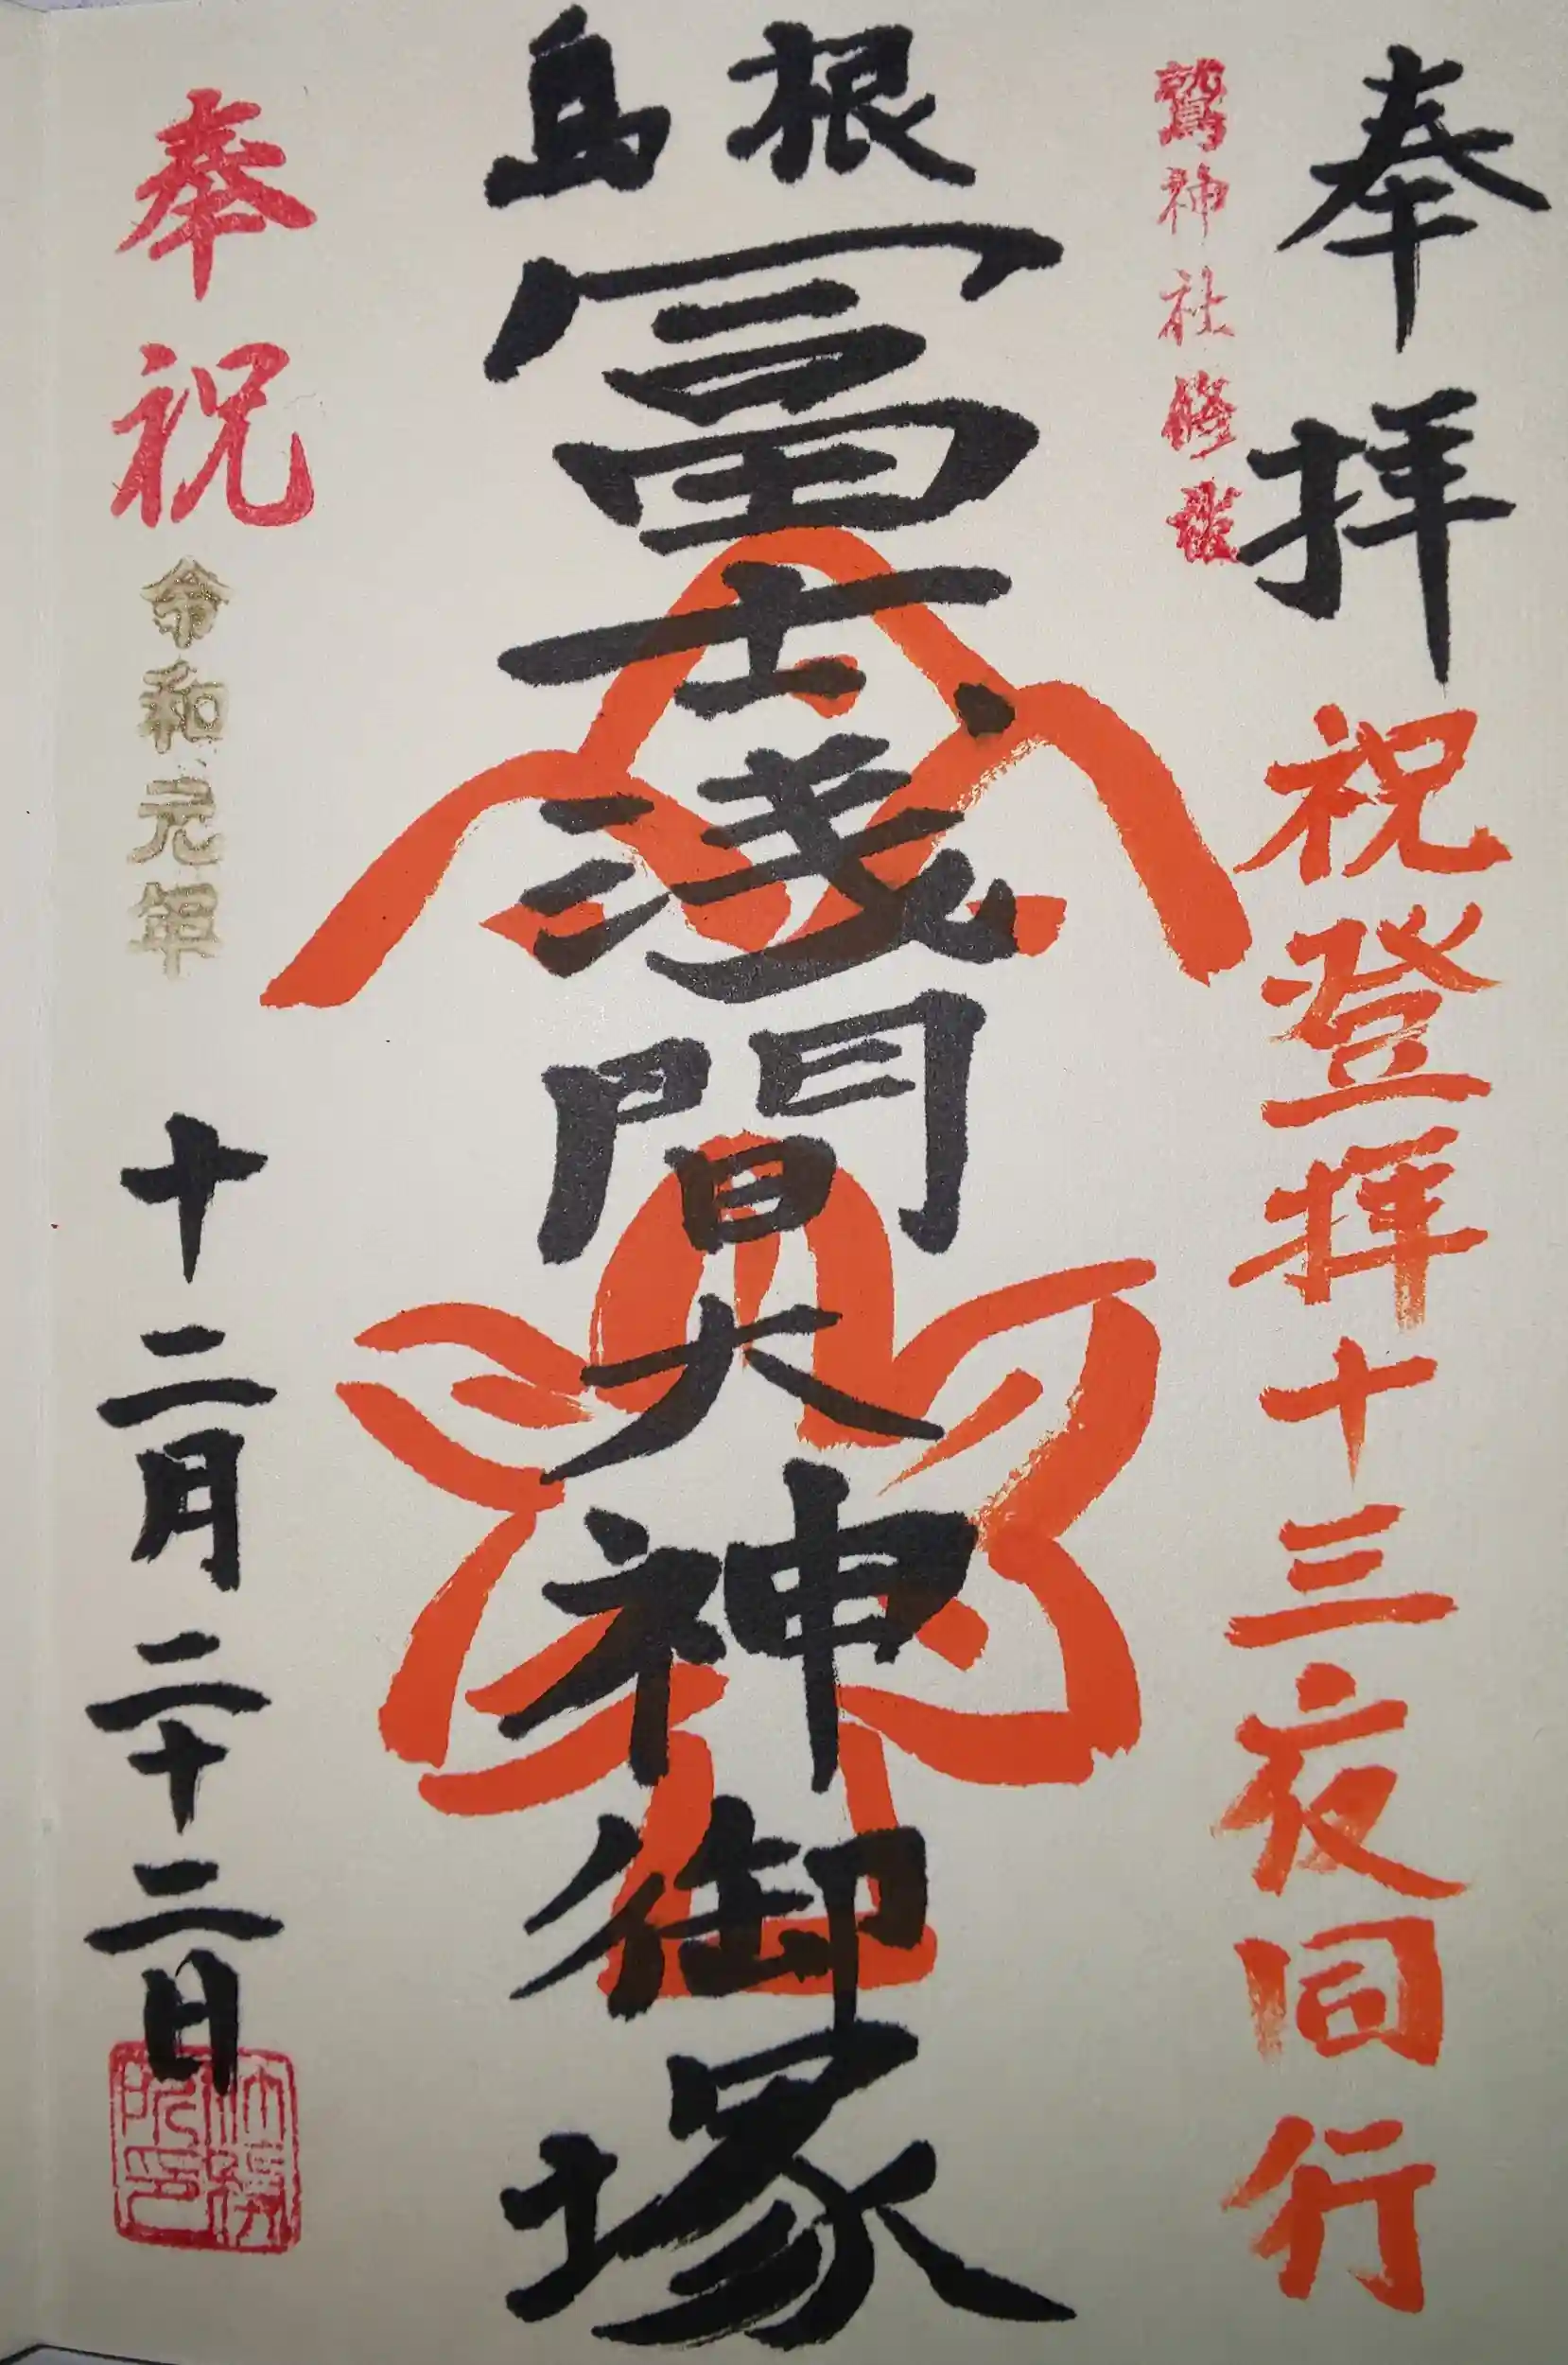 奉拝
祝登拝十三夜同行
鷲神社
島根
冨士浅間大神御塚
奉祝
令和元年
十二月二十二日
社務所印